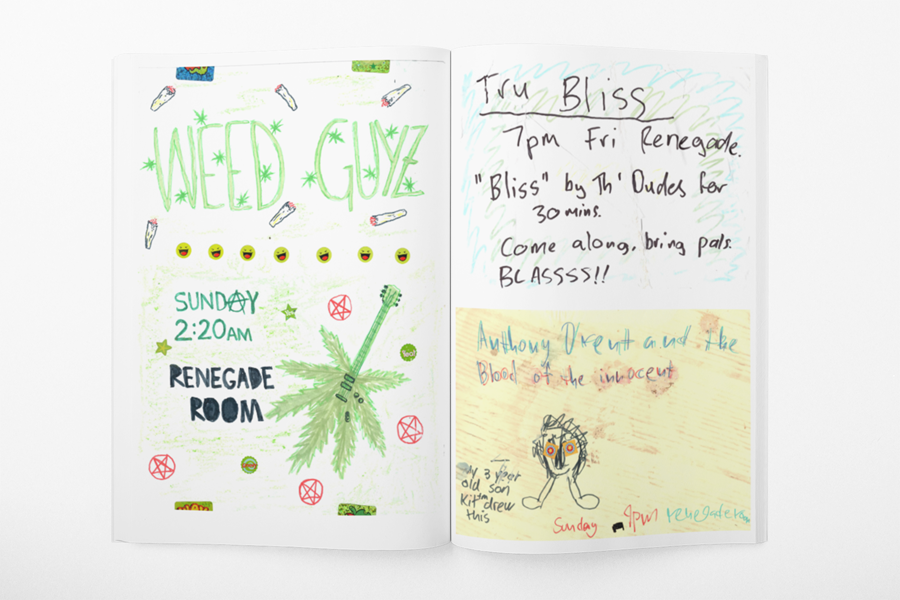 WEED GUYZ
SUNDAY
2:20AM
RENEGADE
ROOM
Tru Bliss
7pm Fri Renegade.
"Bliss" by Th' Dudes for
30 mins.
Come along, bring pals.
BLASSSS!!
Anthony and the
Blood of the innocent
My 3 year
old son
Kit drew
this
Sunday 9pm renegade